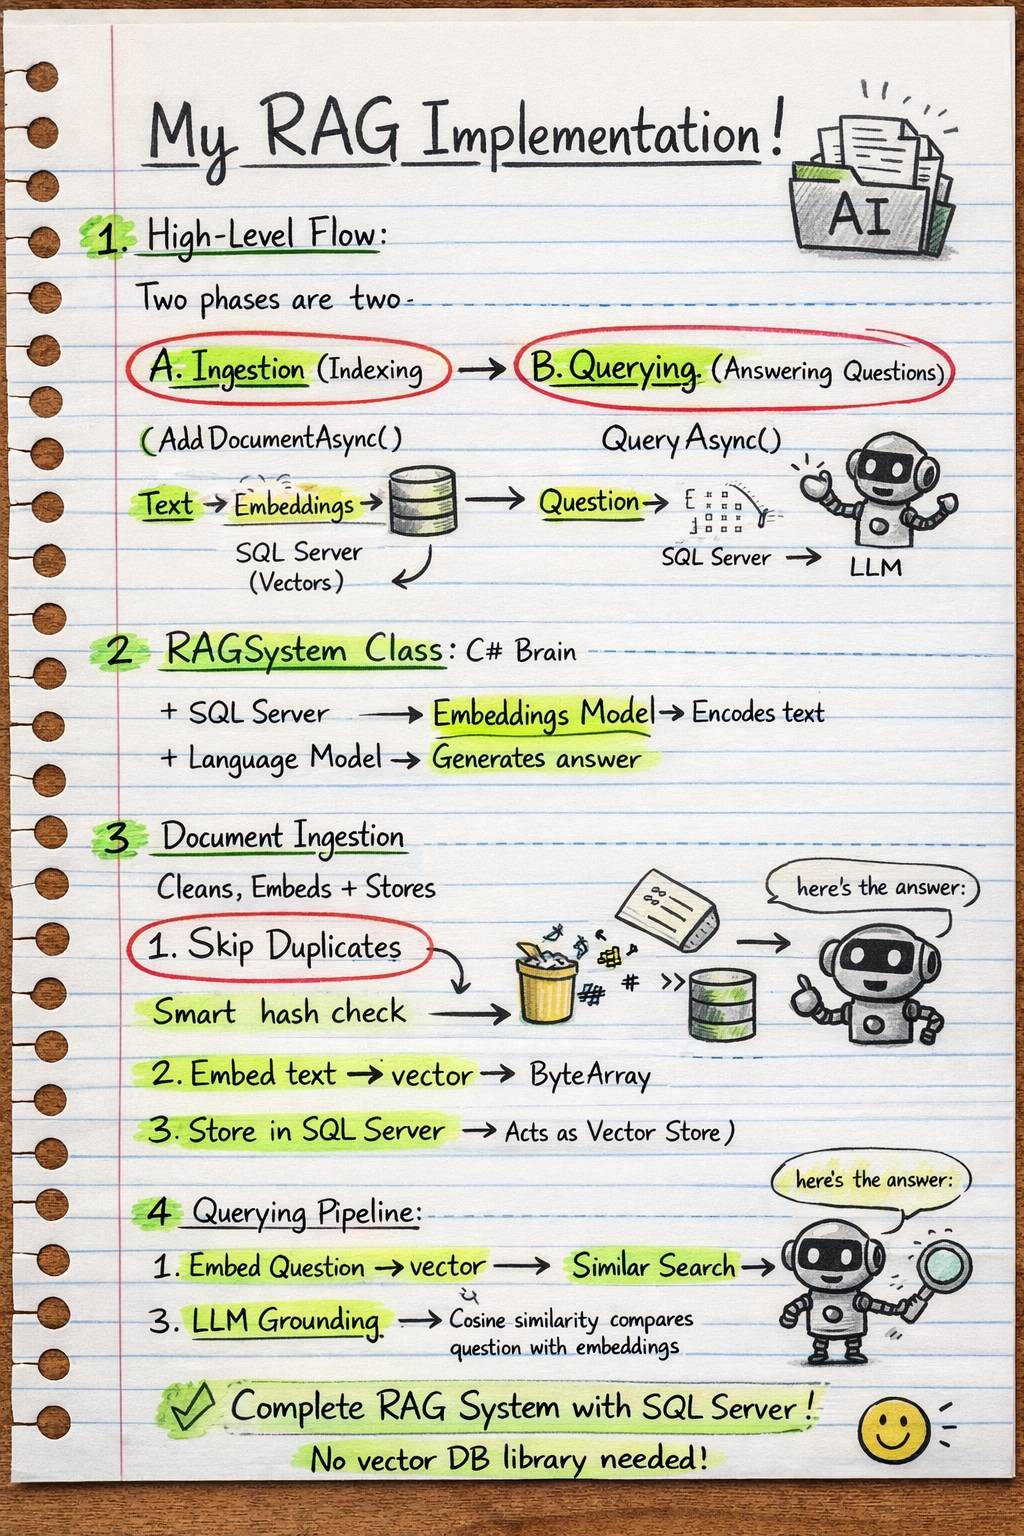 My RAG Implementation!
AI
1. High-Level Flow:
Two phases are two-
A. Ingestion (Indexing → B. Querying. (Answering Questions)
(AddDocumentAsync() QueryAsync()
Text → Embeddings → → Question →
SQL Server
(Vectors)
SQL Server → LLM
2 RAGSystem Class: C# Brain
+ SQL Server → Embeddings Model → Encodes text
+ Language Model → Generates answer
3 Document Ingestion
Cleans, Embeds + Stores
here's the answer:
1. Skip Duplicates
Smart hash check →
2. Embed text → vector → ByteArray
3. Store in SQL Server → Acts as Vector Store)
here's the answer:
4 Querying Pipeline:
1. Embed Question → vector → Similar Search →
3. LLM Grounding. → Cosine similarity compares
question with embeddings
Complete RAG System with SQL Server!
No vector DB library needed!